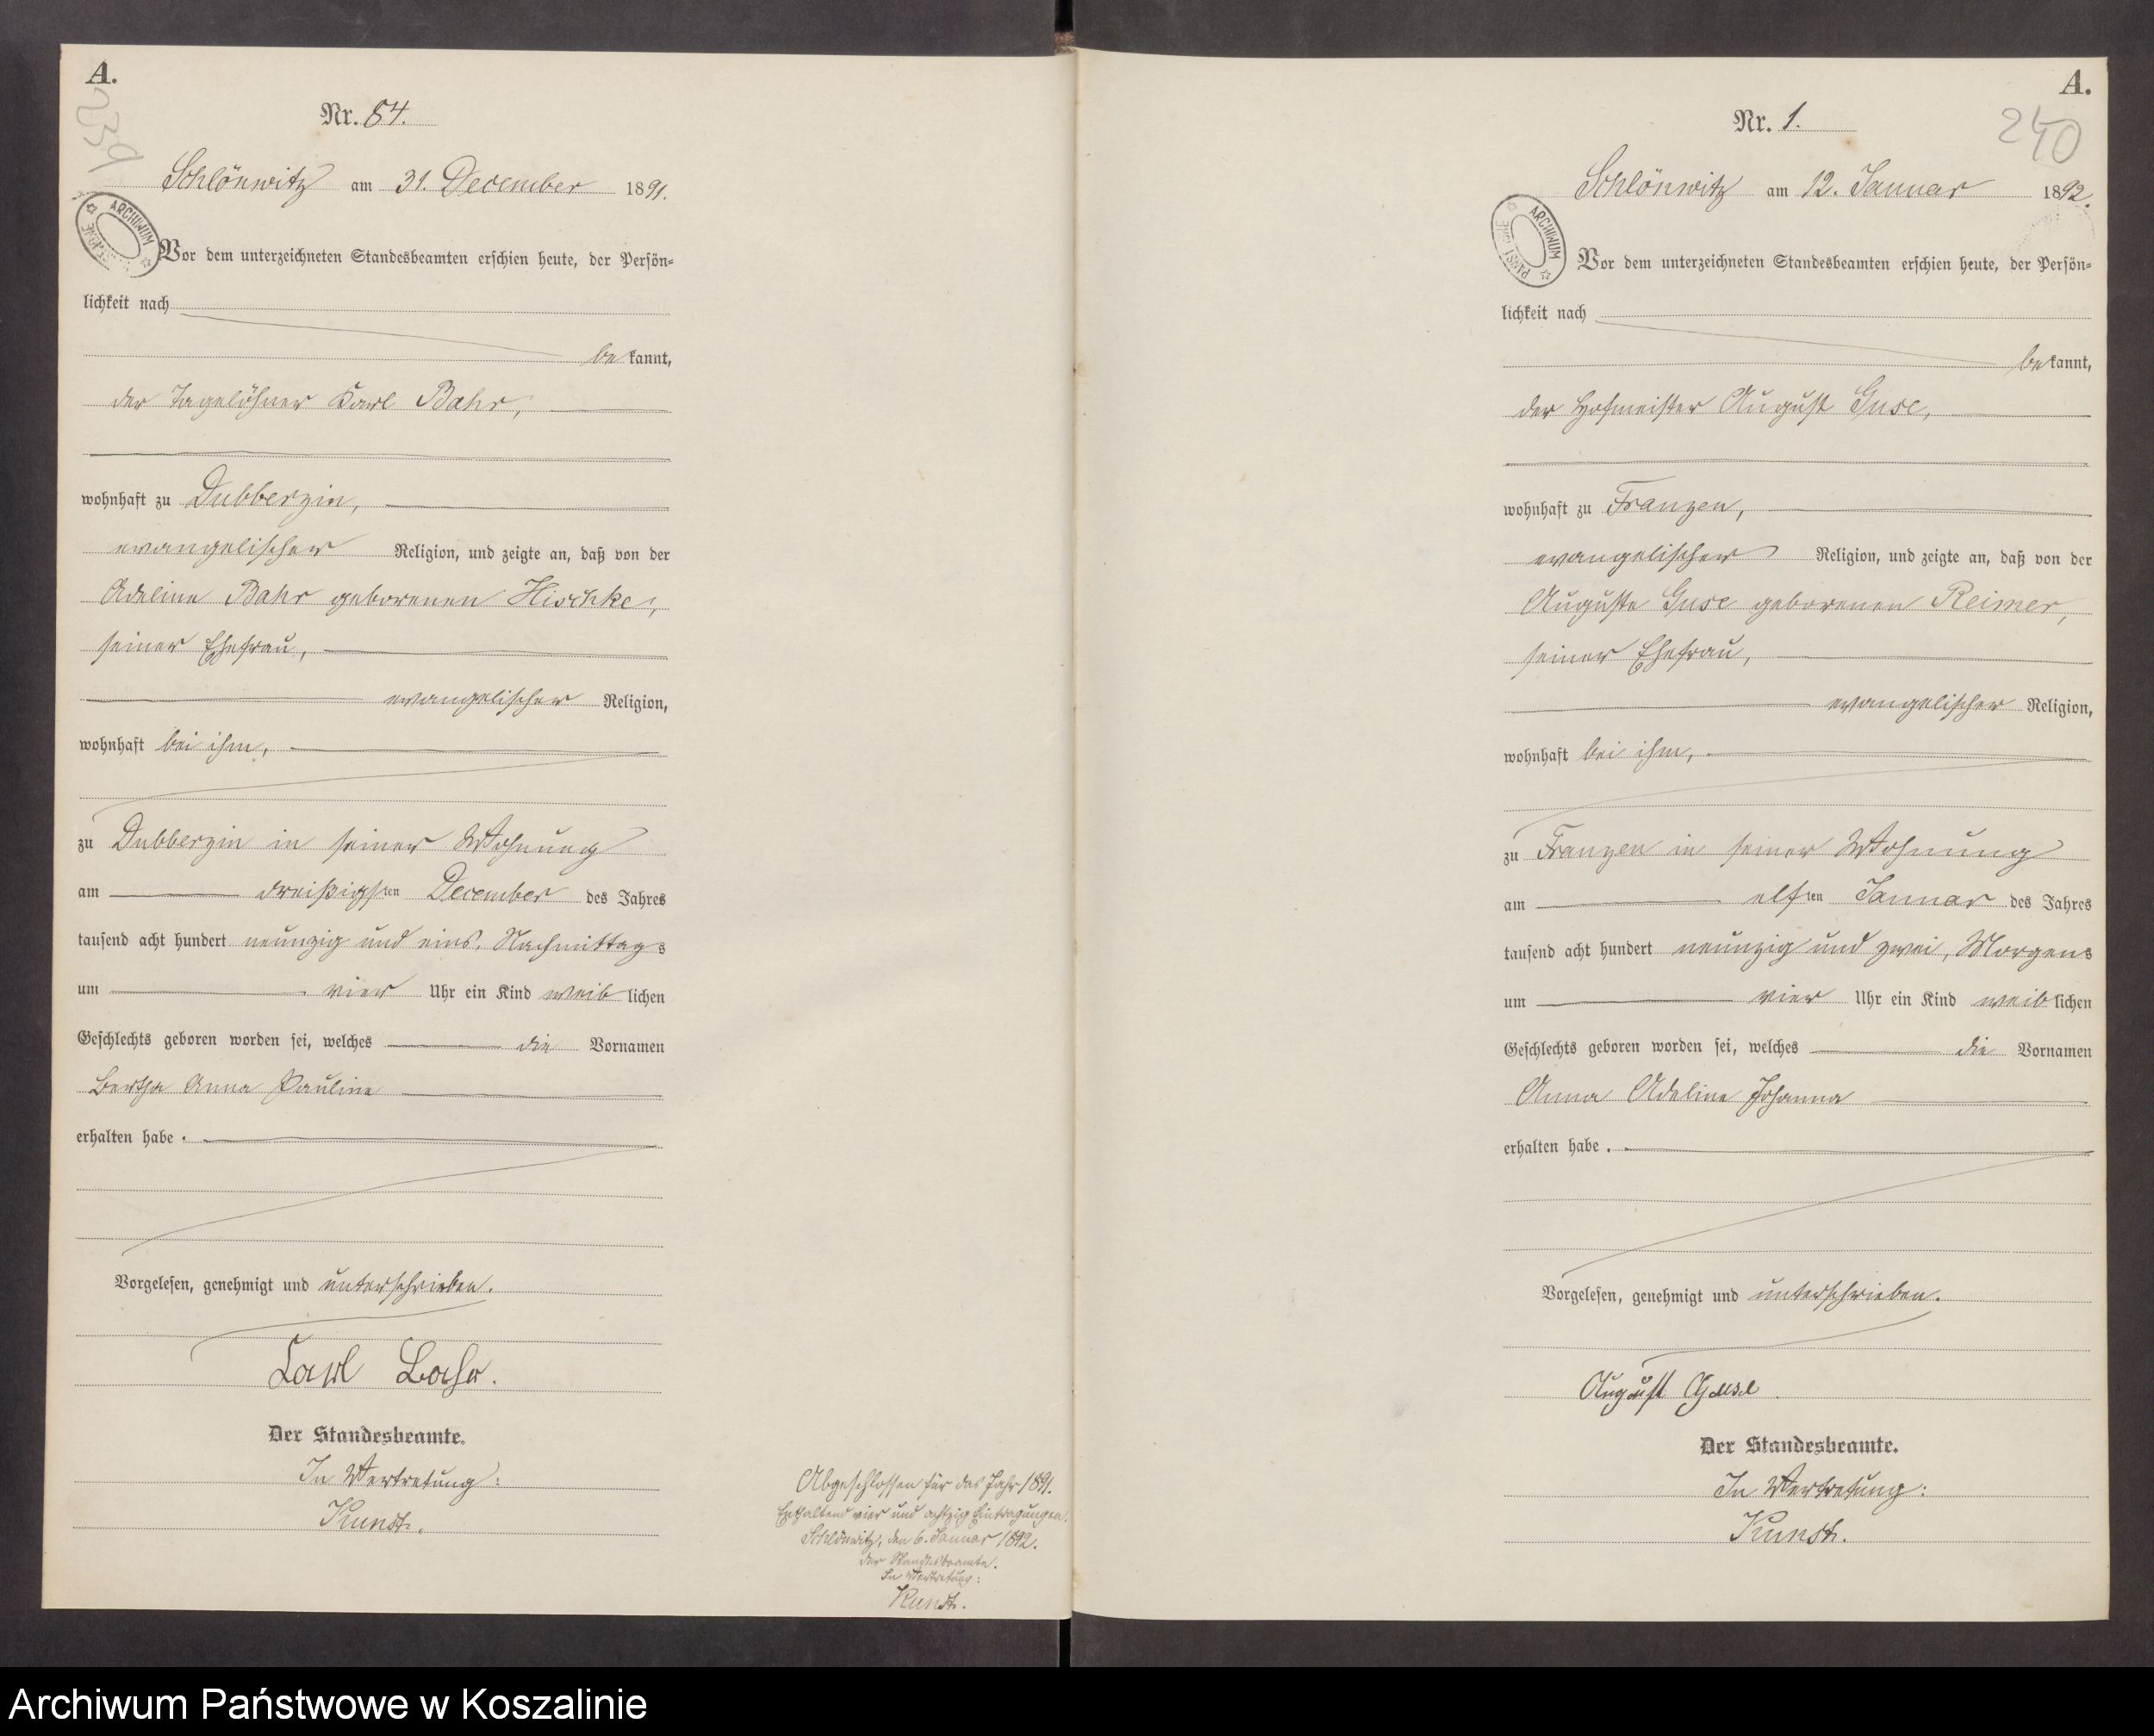 A.
239
Nr. 84.
Schlönwitz am 31. December 1891.
ARCHIWUM
Vor dem unterzeichneten Standesbeamten erschien heute, der Persön=
lichkeit nach
bekannt,
der Tagelöhner Karl Bahr,
wohnhaft zu Dubberzin,
evangelischer Religion, und zeigte an, daß von der
Adeline Bahr geborenen Hischke,
seiner Ehefrau,
evangelischer Religion,
wohnhaft bei ihm,
zu Dubberzin in seiner Wohnung
am dreißigsten December des Jahres
tausend acht hundert neunzig und eins, Nachmittags
um vier Uhr ein Kind weiblichen
Geschlechts geboren worden sei, welches die Vornamen
Bertha Anna Pauline
erhalten habe.
Vorgelesen, genehmigt und unterschrieben.
Carl Bahr.
Der Standesbeamte.
In Vertretung:
Kunst.
Abgeschlossen für das Jahr 1891.
Enthaltend vier und achtzig Eintragungen.
Schlönwitz, den 6. Januar 1892.
Der Standesbeamte.
In Vertretung:
Kunst.
A.
240
Nr. 1.
Schlönwitz am 12. Januar 1892.
ARCHIWUM
Vor dem unterzeichneten Standesbeamten erschien heute, der Persön=
lichkeit nach
bekannt,
der Hofmeister August Guse,
wohnhaft zu Franzen,
evangelischer Religion, und zeigte an, daß von der
Auguste Guse geborenen Reimer,
seiner Ehefrau,
evangelischer Religion,
wohnhaft bei ihm,
zu Franzen in seiner Wohnung
am elften Januar des Jahres
tausend acht hundert neunzig und zwei, Morgens
um vier Uhr ein Kind weiblichen
Geschlechts geboren worden sei, welches die Vornamen
Anna Adeline Johanna
erhalten habe.
Vorgelesen, genehmigt und unterschrieben.
August Guse.
Der Standesbeamte.
In Vertretung:
Kunst.
Archiwum Państwowe w Koszalinie